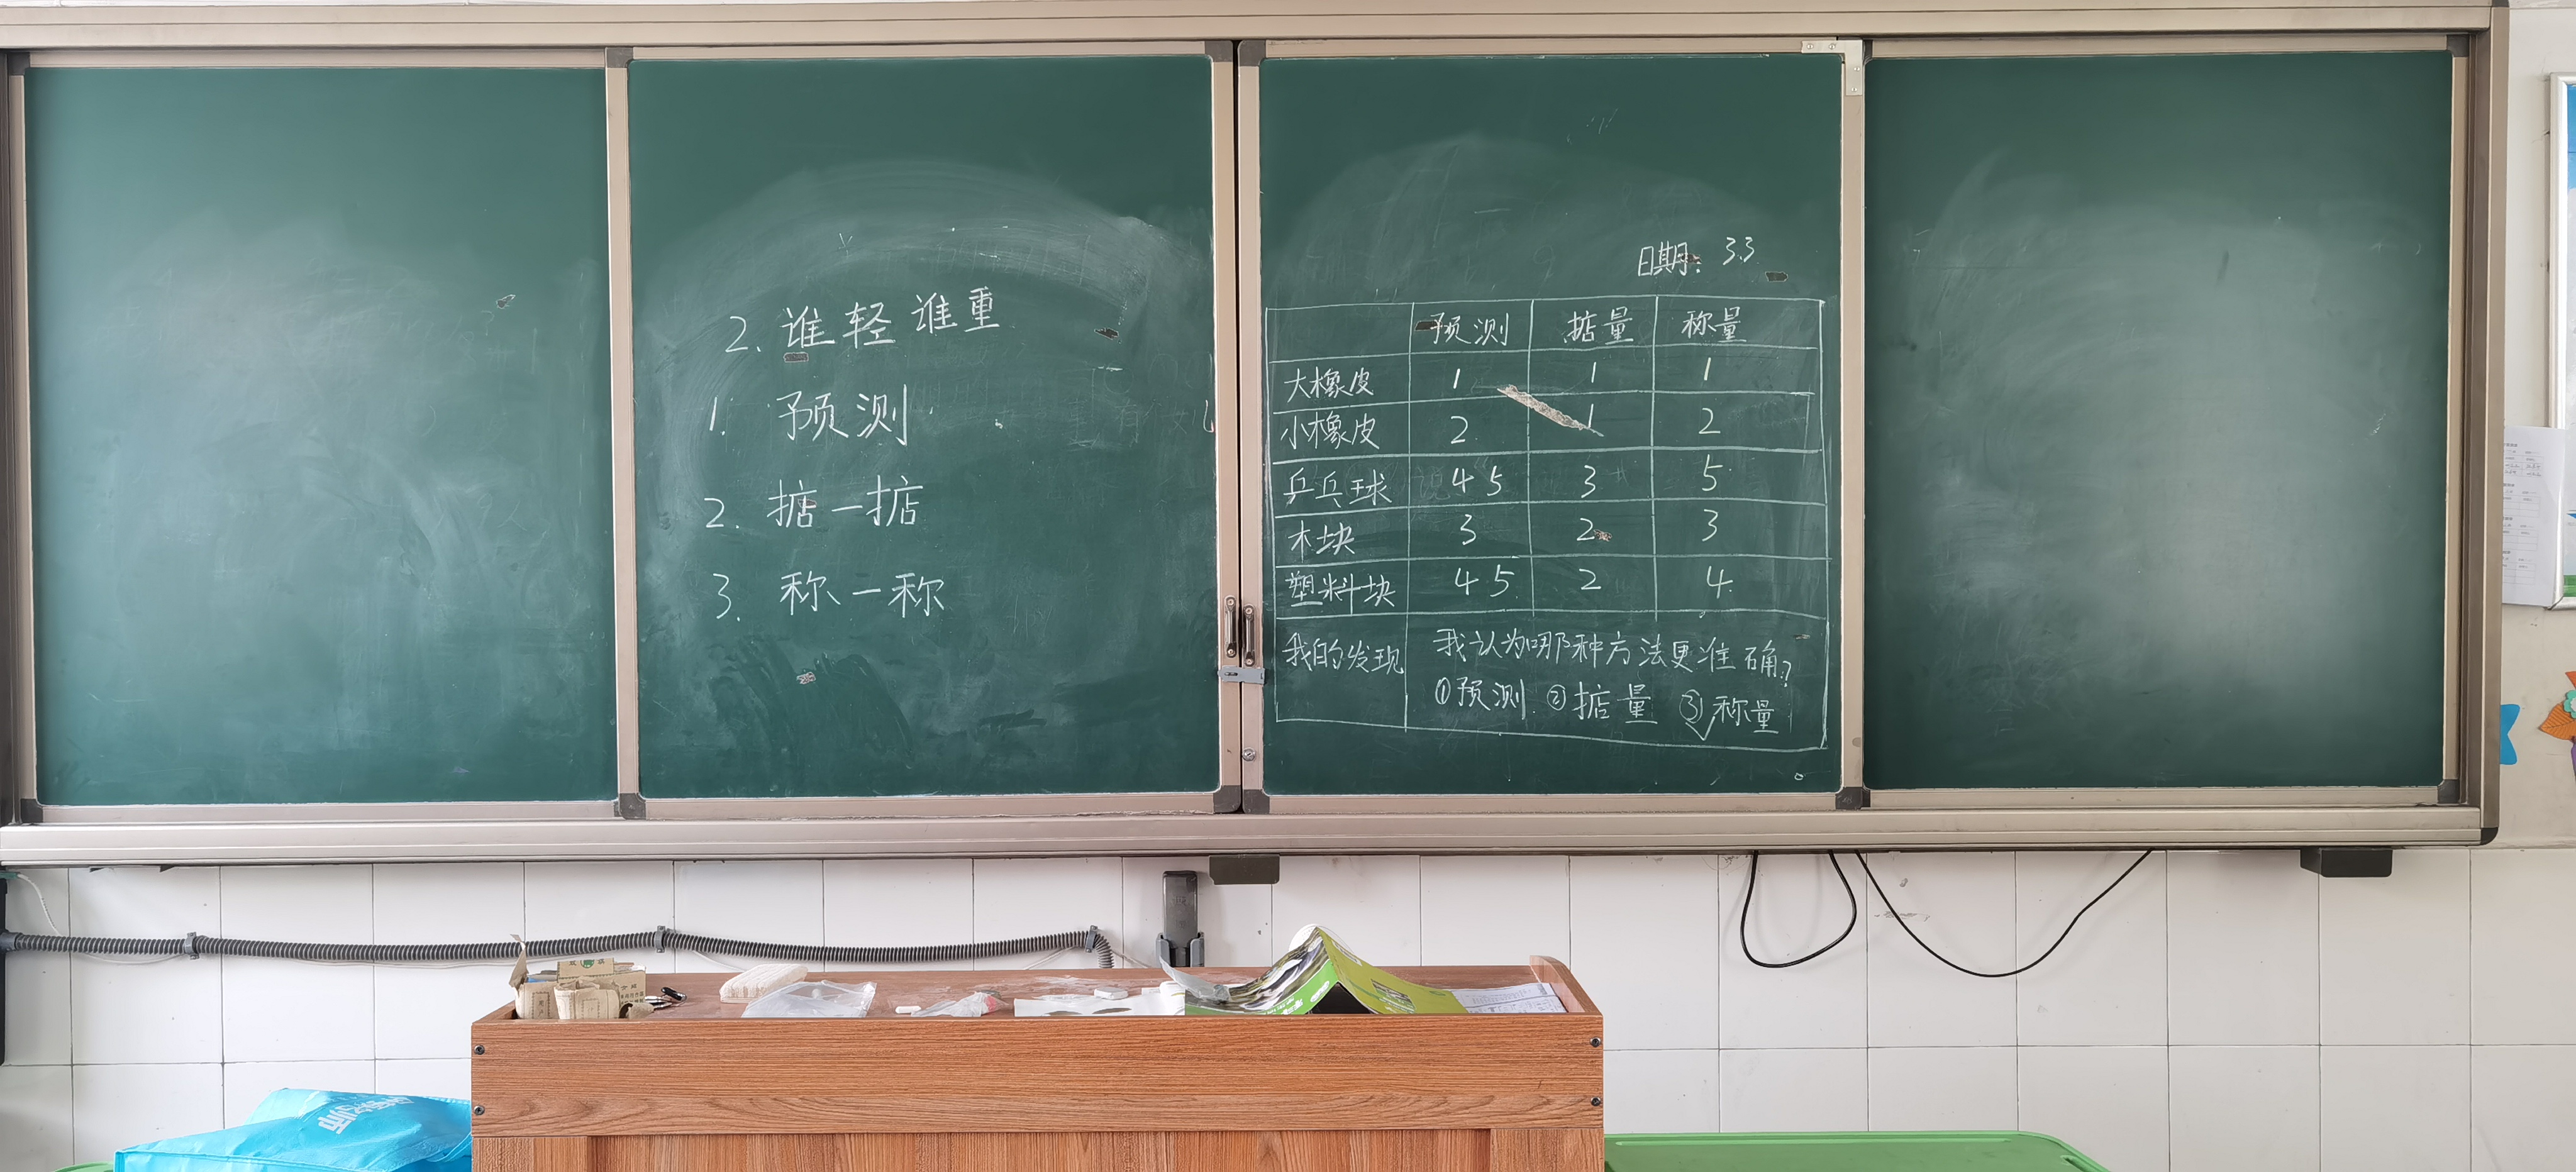 2. 谁轻谁重
1. 预测
2. 掂一掂
3. 称一称
日期: 3.3
预测 掂量 称量
大橡皮 1 1 1
小橡皮 2 1 2
乒乓球 4 5 3 5
木块 3 2 3
塑料块 4 5 2 4
我的发现 我认为哪种方法更准确?
①预测 ②掂量 ③称量